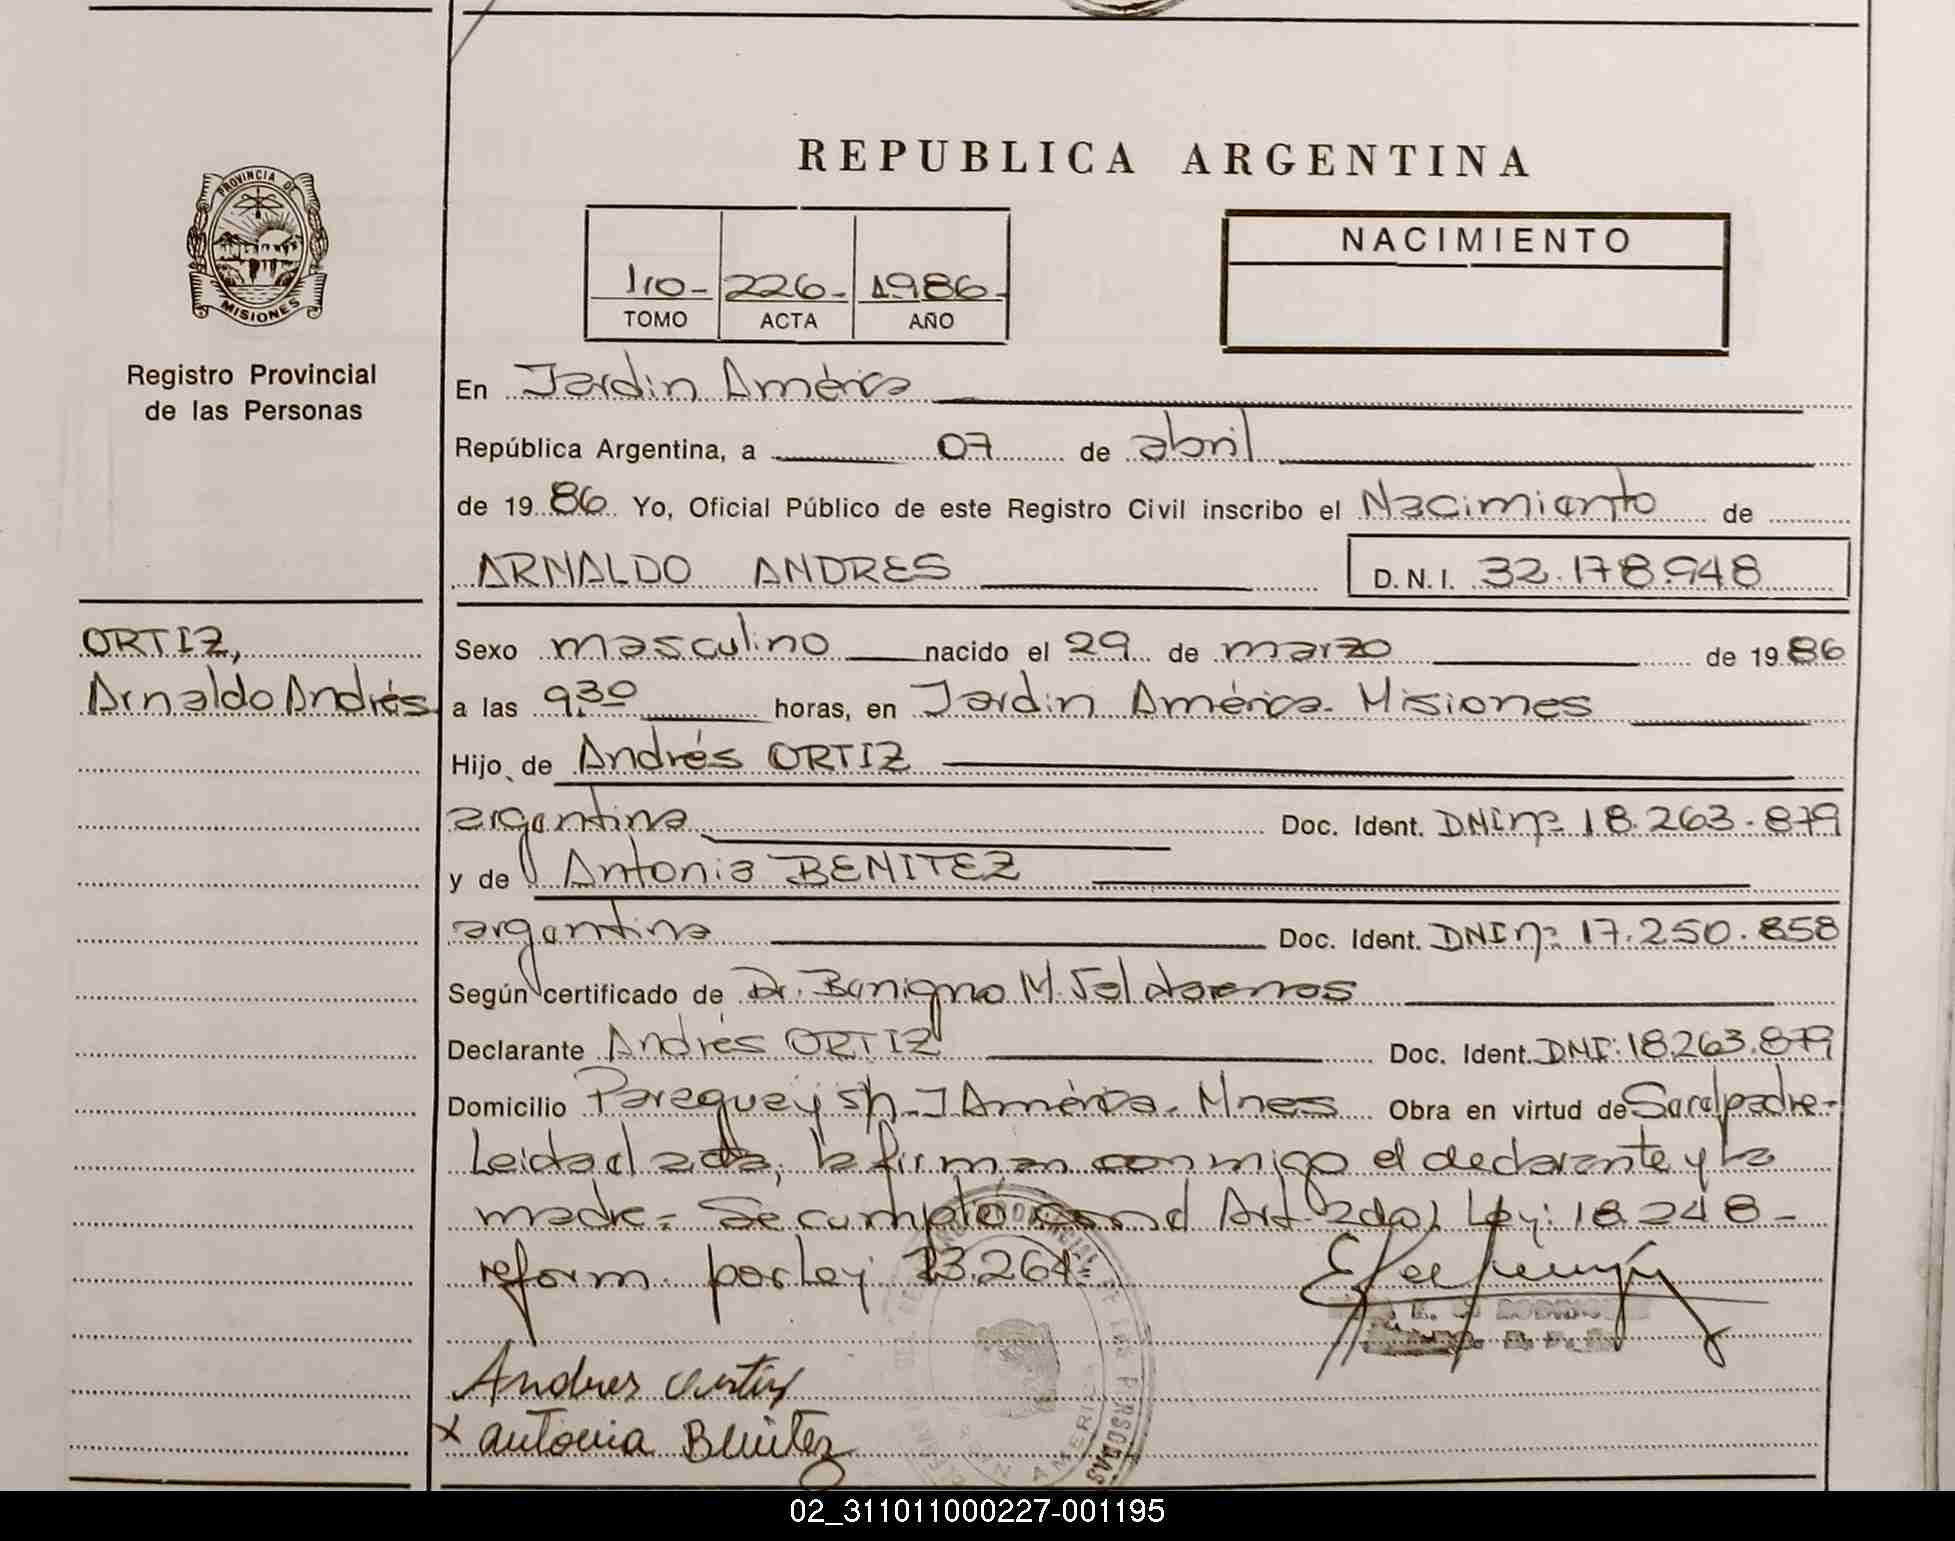 REPUBLICA ARGENTINA
PROVINCIA DE MISIONES
Registro Provincial
de las Personas
1ro- 226- 1986-
TOMO ACTA AÑO
NACIMIENTO
En Jardin América
República Argentina, a 07 de abril
de 1986 Yo, Oficial Público de este Registro Civil inscribo el Nacimiento de
ARNALDO ANDRES D.N.I. 32.178.948
ORTIZ,
Arnaldo Andrés
Sexo masculino nacido el 29 de marzo de 1986
a las 9,30 horas, en Jardin América. Misiones
Hijo de Andrés ORTIZ
argentina Doc. Ident. DNI nº 18.263.879
y de Antonia BENITEZ
argentina Doc. Ident. DNI nº 17.250.858
Según certificado de Dr. Benigno M.
Declarante Andrés ORTIZ Doc. Ident. DNI: 18263.879
Domicilio Paraguay s/n. J América. Mnes Obra en virtud de Ser el padre-
Leida el acta, la firman conmigo el declarante y la
madre= Se cumplió con el Art. 2do) Ley: 18.248-
reform. por Ley 23.264
Andres Ortiz
x antonia Benitez
02_311011000227-001195